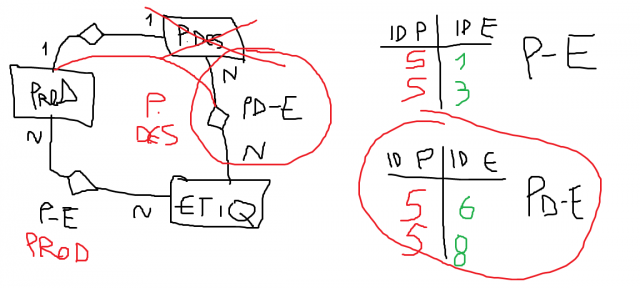 1
1
P.DES
N
PROD
P.
DES
PD-E
N
N
N
ETIQ
P-E
PROD
ID P ID E
5 1
5 3
P-E
ID P ID E
5 6
5 8
PD-E